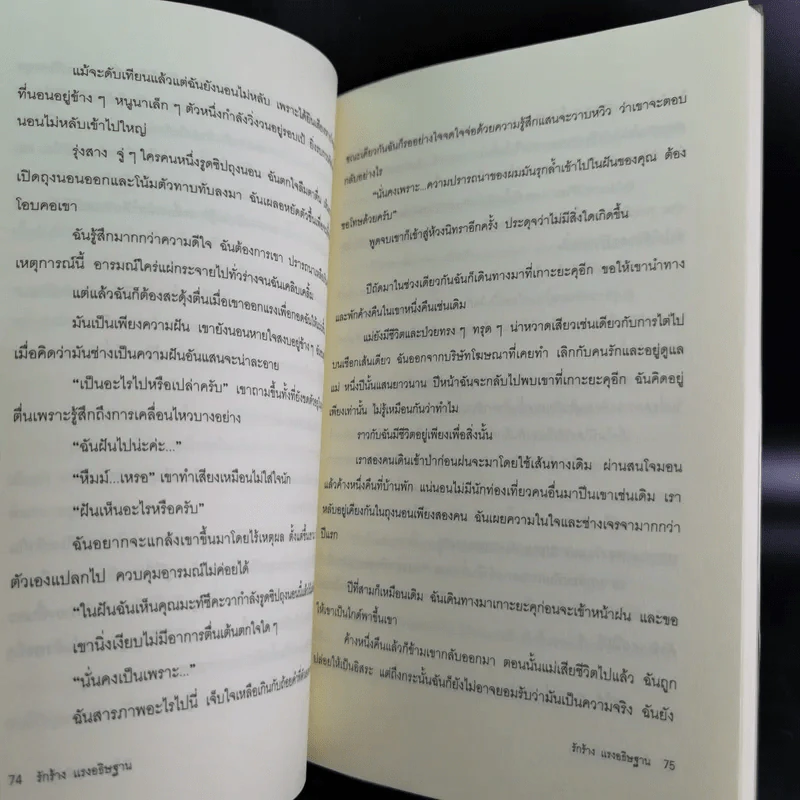 แม้จะดับเทียนแล้วแต่ฉันยังนอนไม่หลับ เพราะได้ยินเสียง
ที่นอนอยู่ข้าง ๆ หนูนาเล็ก ๆ ตัวหนึ่งกำลังวิ่งวนอยู่รอบเป้
นอนไม่หลับเข้าไปใหญ่
รุ่งสาง จู่ ๆ ใครคนหนึ่งรูดซิปถุงนอน ฉันตกใจลืมตาตื่น
เปิดถุงนอนออกและโน้มตัวทาบทับลงมา ฉันเผลอหยัดตัวขึ้น
โอบคอเขา
ฉันรู้สึกมากกว่าความดีใจ ฉันต้องการเขา ปรารถนา
เหตุการณ์นี้ อารมณ์ใคร่แผ่กระจายไปทั่วร่างจนฉันเคลิบเคลิ้ม
แต่แล้วฉันก็ต้องสะดุ้งตื่นเมื่อเขาออกแรงเพื่อกอดฉัน
มันเป็นเพียงความฝัน เขายังนอนหายใจสงบอยู่ข้าง ๆ
เมื่อคิดว่ามันช่างเป็นความฝันอันแสนจะน่าละอาย
“เป็นอะไรไปหรือเปล่าครับ” เขาถามขึ้นทั้งที่ยัง
ตื่นเพราะรู้สึกถึงการเคลื่อนไหวบางอย่าง
“ฉันฝันไปน่ะค่ะ...”
“หืมม์...เหรอ” เขาทำเสียงเหมือนไม่ใส่ใจนัก
“ฝันเห็นอะไรหรือครับ”
ฉันอยากจะแกล้งเขาขึ้นมาโดยไร้เหตุผล
ตัวเองแปลกไป ควบคุมอารมณ์ไม่ค่อยได้
“ในฝันฉันเห็นคุณมะท์ซึคะวากำลังรูดซิปถุงนอน
เขานิ่งเงียบไม่มีอาการตื่นเต้นตกใจใด ๆ
“นั่นคงเป็นเพราะ...”
ฉันสารภาพอะไรไปนี่ เจ็บใจเหลือเกินกับถ้อยคำที่
74 รักร้าง แรงอธิษฐาน
ขณะเดียวกันฉันก็รออย่างใจจดใจจ่อด้วยความรู้สึกแสนจะวาบหวิว ว่าเขาจะตอบ
กลับอย่างไร
“นั่นคงเพราะ...ความปรารถนาของผมมันรุกล้ำเข้าไปในฝันของคุณ ต้อง
ขอโทษด้วยครับ”
พูดจบเขาก็เข้าสู่ห้วงนิทราอีกครั้ง ประดุจว่าไม่มีสิ่งใดเกิดขึ้น
ปีถัดมาในช่วงเดียวกันฉันก็เดินทางมาที่เกาะยะคุอีก ขอให้เขานำทาง
และพักค้างคืนในเขาหนึ่งคืนเช่นเดิม
แม่ยังมีชีวิตและป่วยทรง ๆ ทรุด ๆ น่าหวาดเสียวเช่นเดียวกับการไต่ไป
บนเชือกเส้นเดียว ฉันออกจากบริษัทโฆษณาที่เคยทำ เลิกกับคนรักและอยู่ดูแล
แม่ หนึ่งปีนั้นแสนยาวนาน ปีหน้าฉันจะกลับไปพบเขาที่เกาะยะคุอีก ฉันคิดอยู่
เพียงเท่านั้น ไม่รู้เหมือนกันว่าทำไม
ราวกับฉันมีชีวิตอยู่เพียงเพื่อสิ่งนั้น
เราสองคนเดินเข้าป่าก่อนฝนจะมาโดยใช้เส้นทางเดิม ผ่านสนโจมอน
แล้วค้างหนึ่งคืนที่บ้านพัก แน่นอนไม่มีนักท่องเที่ยวคนอื่นมาปีนเขาเช่นเดิม เรา
หลับอยู่เคียงกันในถุงนอนเพียงสองคน ฉันเผยความในใจและช่างเจรจามากกว่า
ปีแรก
ปีที่สามก็เหมือนเดิม ฉันเดินทางมาเกาะยะคุก่อนจะเข้าหน้าฝน และขอ
ให้เขาเป็นไกด์พาขึ้นเขา
ค้างหนึ่งคืนแล้วก็ข้ามเขากลับออกมา ตอนนั้นแม่เสียชีวิตไปแล้ว ฉันถูก
ปล่อยให้เป็นอิสระ แต่ถึงกระนั้นฉันก็ยังไม่อาจยอมรับว่ามันเป็นความจริง ฉันยัง
รักร้าง แรงอธิษฐาน 75